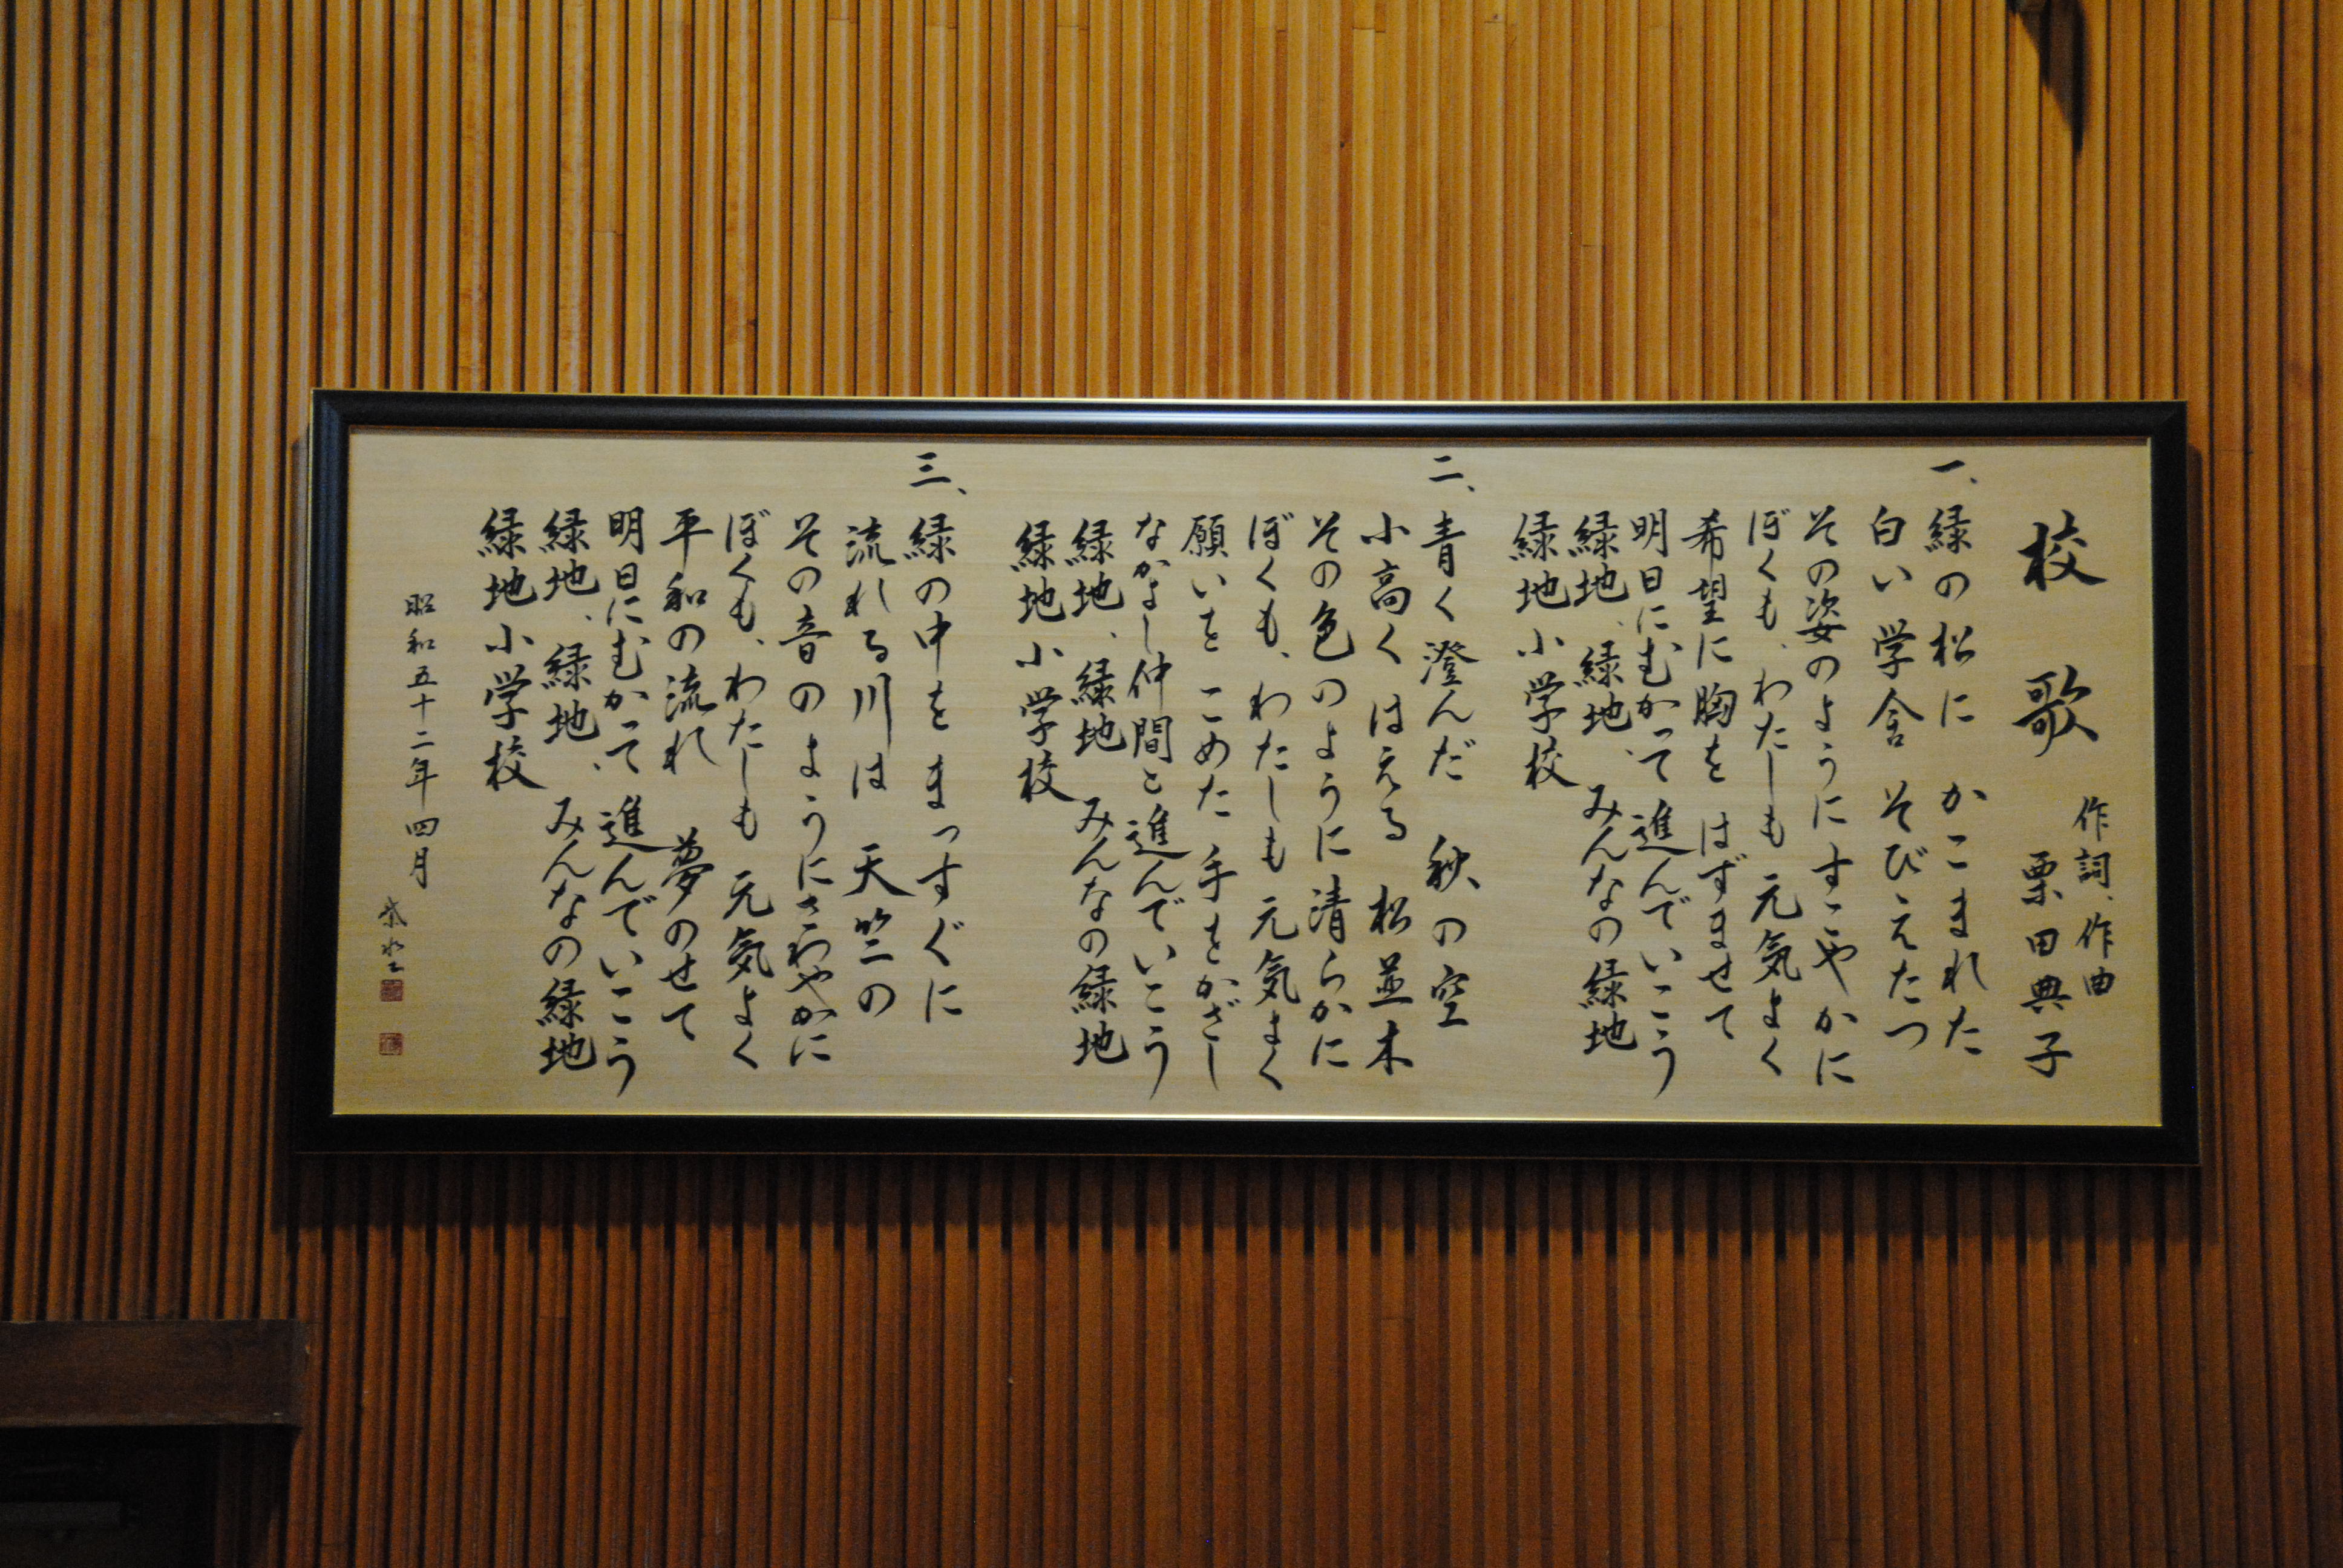 校歌
作詞、作曲
栗田典子
一、緑の松に かこまれた
白い学舎 そびえたつ
その姿のようにすこやかに
ぼくも、わたしも元気よく
希望に胸を はずませて
明日にむかって 進んでいこう
緑地、緑地、みんなの緑地
緑地小学校
二、青く澄んだ 秋の空
小高く はえる 松並木
その色のように清らかに
ぼくも、わたしも元気よく
願いを こめた 手をかざし
なかよし仲間と進んでいこう
緑地、緑地 みんなの緑地
緑地小学校
三、緑の中を まっすぐに
流れる川は 天竺の
その音のようにさわやかに
ぼくも、わたしも 元気よく
平和の流れ 夢のせて
明日にむかって 進んでいこう
緑地、緑地、みんなの緑地
緑地小学校
昭和五十二年四月